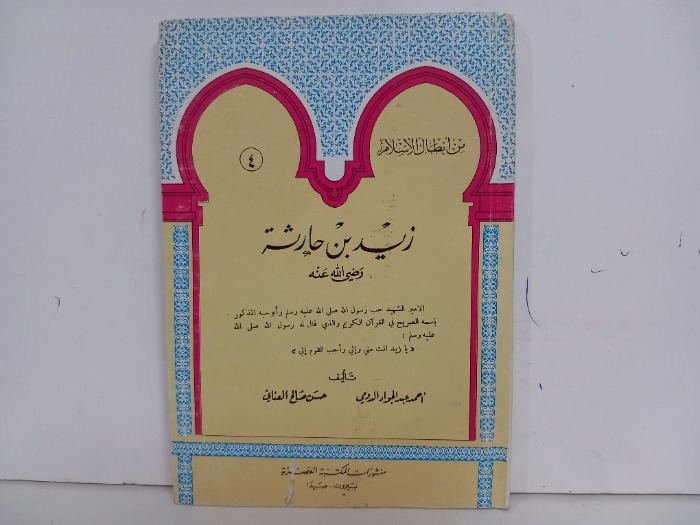 من أبطال الإسلام
٤
زيد بن حارثة
رضي الله عنه
الامير الشهيد حب رسول الله صلى الله عليه وسلم وأبو حبه المذكور
باسمه الصريح في القرآن الكريم والذي قال له رسول الله صلى الله
عليه وسلم :
« يا زيد انت مني وإلي وأحب القوم إلي »
تأليف
أحمد عبد الجواد الدومي حسن صالح العناني
منشورات المكتبة العصرية
بيروت - صيدا